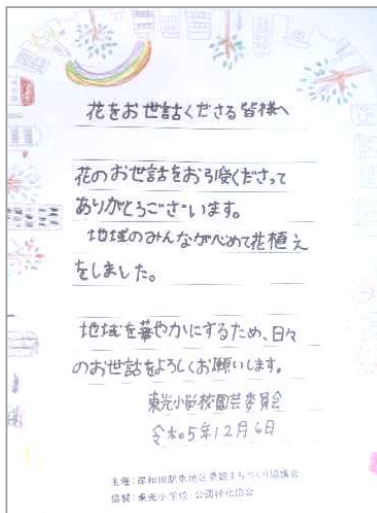 花をお世話くださる皆様へ
花のお世話をお引受くださって
ありがとうございます。
地域のみんなが心こめて花植え
をしました。
地域を華やかにするため、日々
のお世話をよろしくお願いします。
東光小学校園芸委員会
令和5年12月6日
主催:岸和田駅東地区景観まちづくり協議会
協賛:東光小学校・公園緑化協会